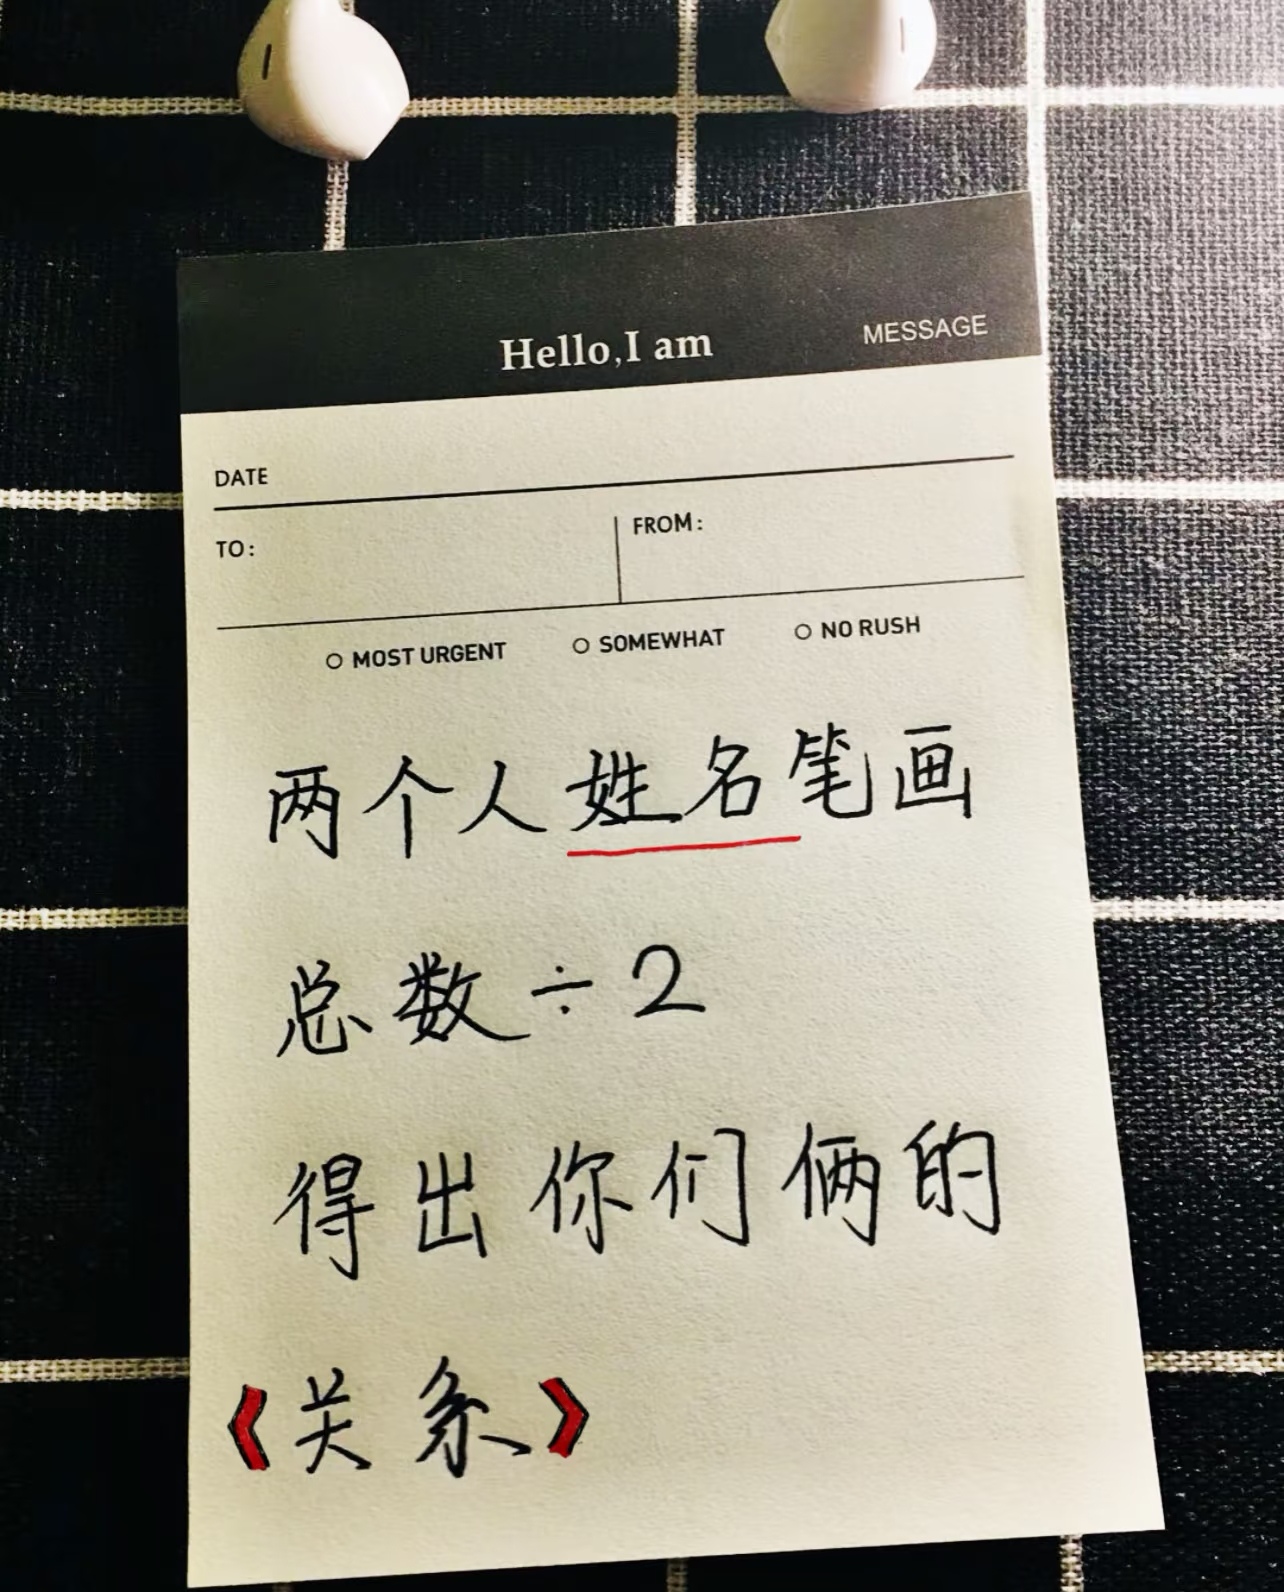 Hello,I am
MESSAGE
DATE
TO:
FROM:
MOST URGENT
SOMEWHAT
NO RUSH
两个人姓名笔画
总数÷2
得出你们俩的
《关系》